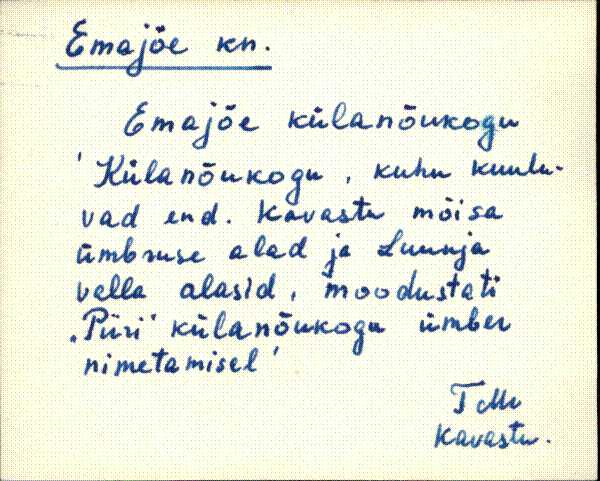 Emajõe kn.
Emajõe külanõukogu
'Külanõukogu, kuhu kuulu-
vad end. Kavastu mõisa
ümbruse alad ja Luunja
valla alasid, moodustati
"Piiri" külanõukogu ümber
nimetamisel'
TMr
Kavastu.